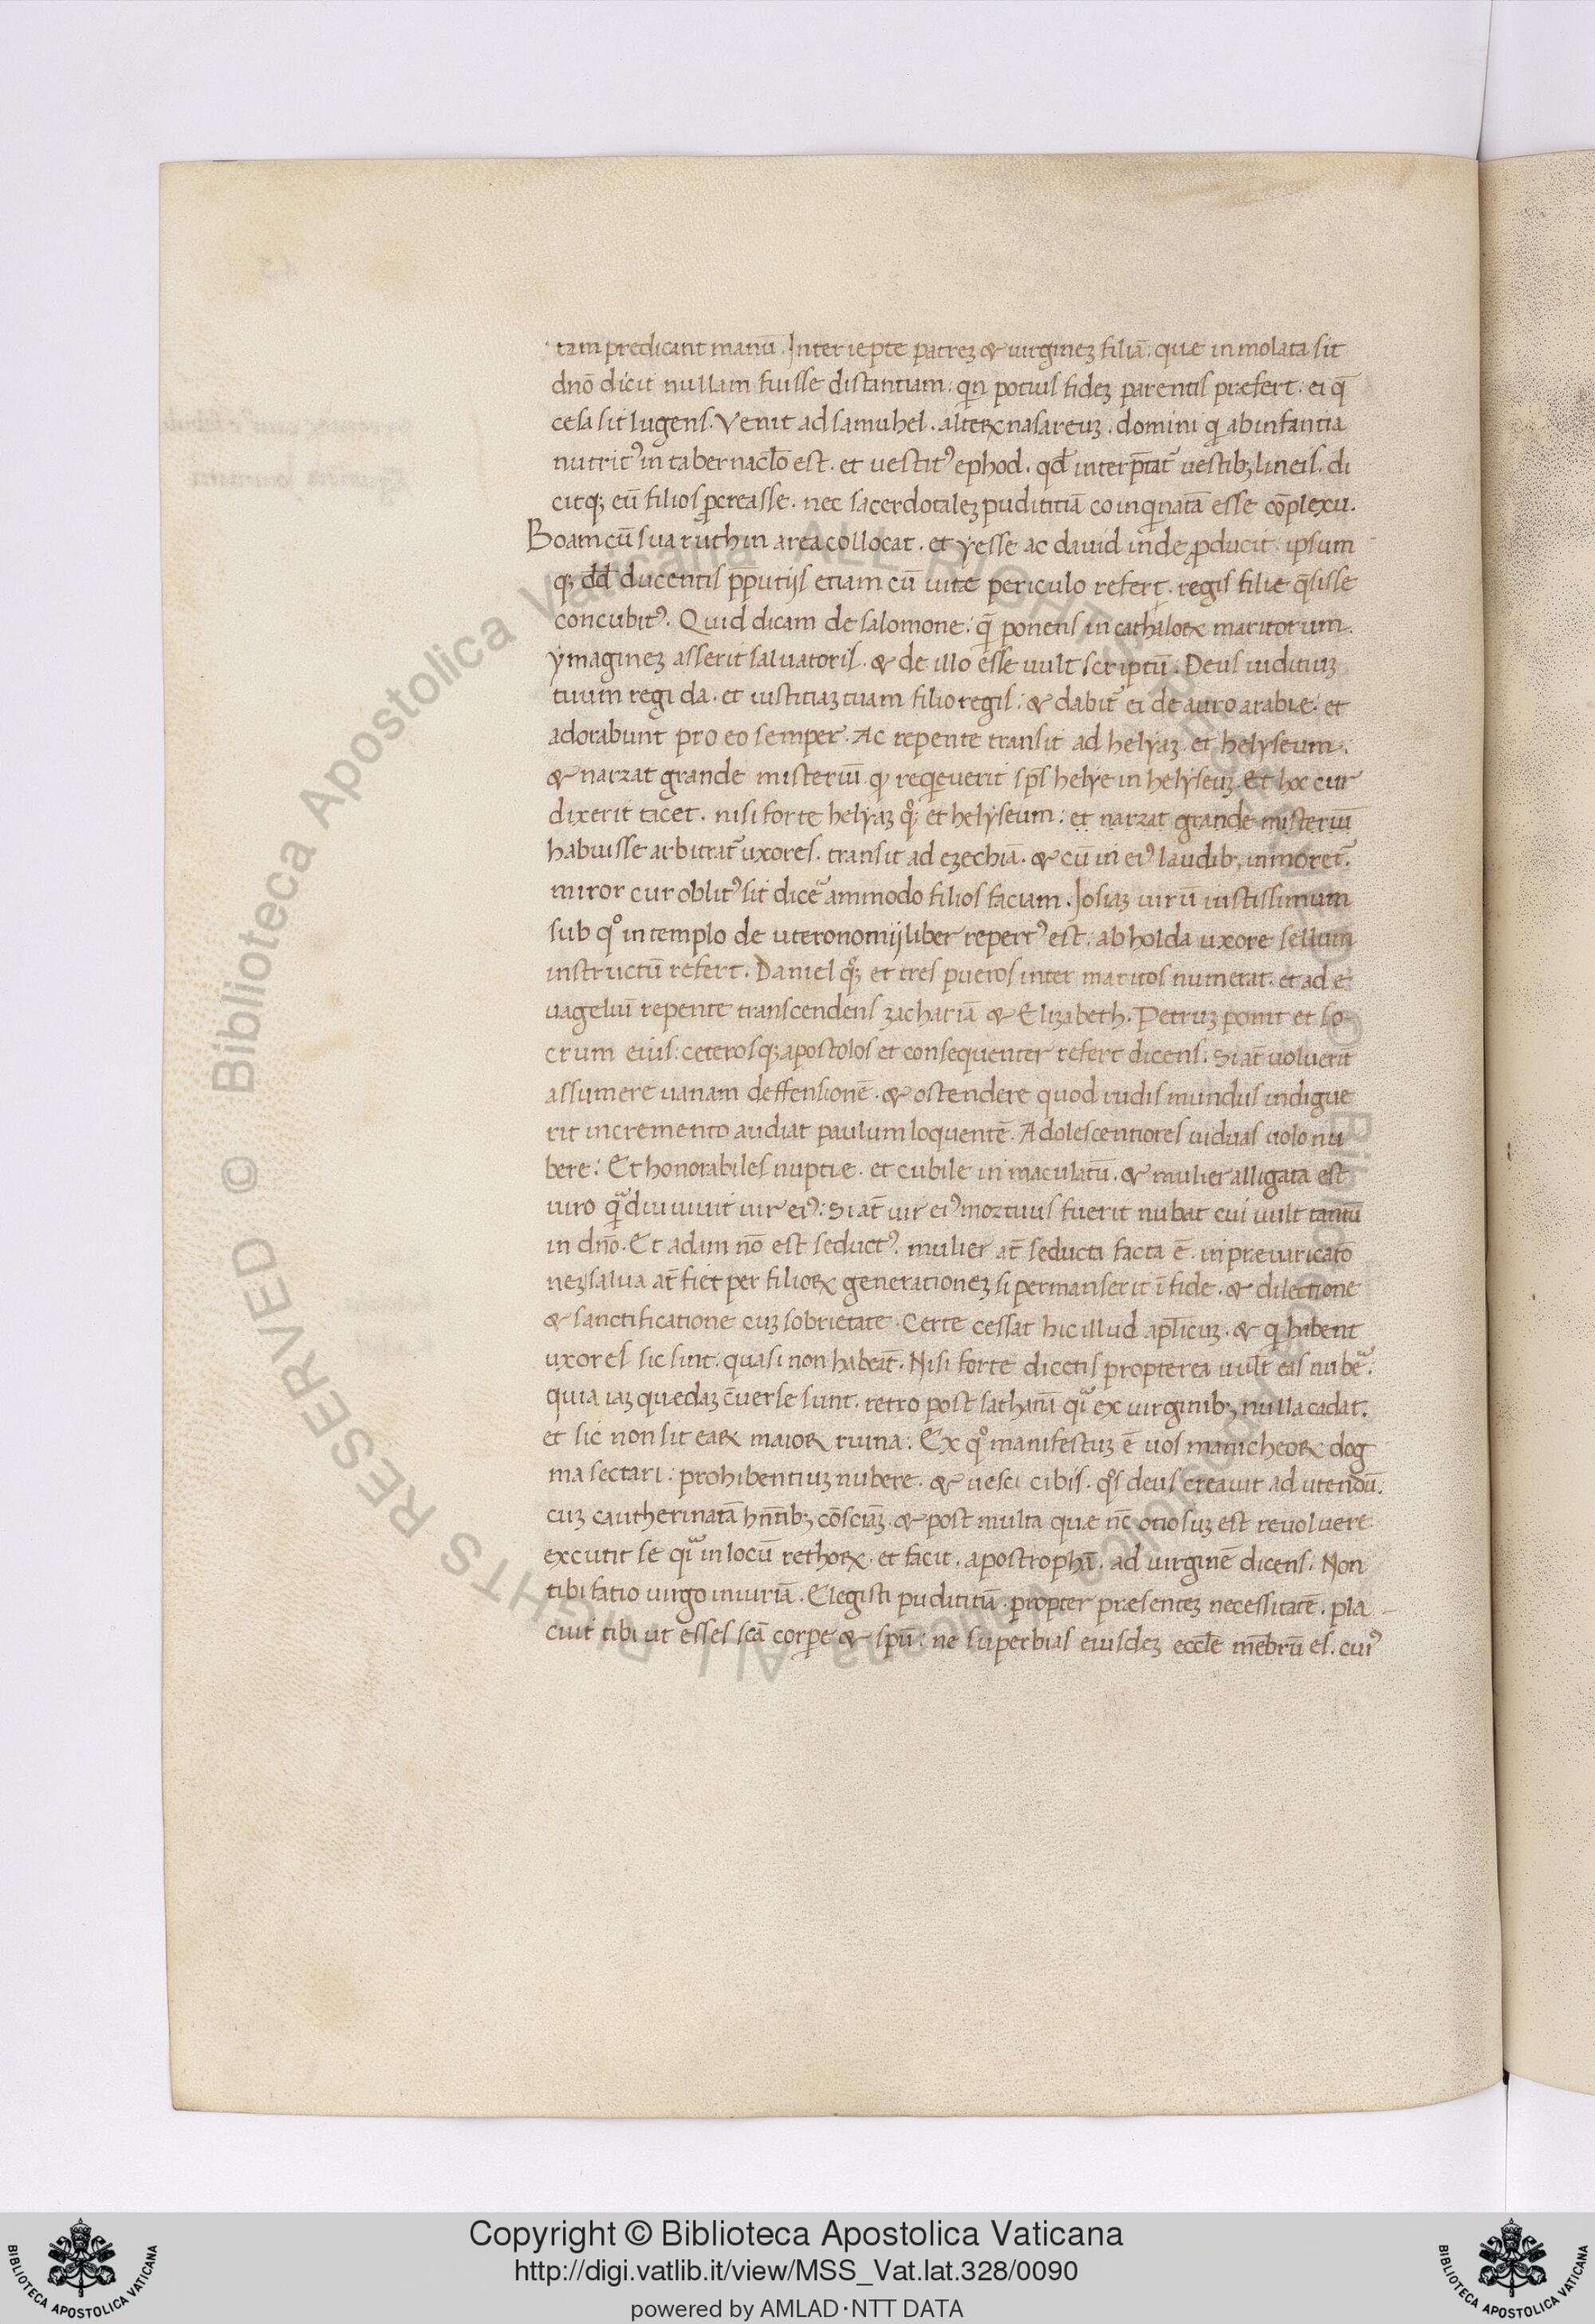 tam predicant manū. Inter iepte patreꝫ & uirgineꝫ filiā: que inmolata sit
dnō dicit nullam fuisse distantiam: qin potius fideꝫ parentis præfert: ei q̄
cesa sit lugens. Venit ad samuhel. alteꝝ nasareuꝫ. domini qi ab infantia
nutritꝰ in tabernaclō est. et uestitꝰ ephod. qđ interp̄tat᷑ uestibꝫ lineis. di
citqꝫ eū filios ꝓcreasse. nec sacerdotaleꝫ pudititiā coinqinatā esse cōplexu.
Boam cū sua ruth in area collocat. et yesse ac dauid inde ꝓducit: ipsum
qꝫ dd̄ ducentis p̄putijs etiam cū uitæ periculo refert. regis filie q̄sisse
concubitꝰ. Quid dicam de salomone: q̄ ponens in cathaloꝝ maritorum.
ymagineꝫ asserit saluatoris. & de illo esse uult scriptū. Deus iuditiuꝫ
tuum regi da. et iustitiaꝫ tuam filio regis: & dabit᷑ ei de auro arabiæ: et
adorabunt pro eo semper. Ac repente transit ad helyaꝫ et helyseum.
& narrat grande misteriū qꝫ reqieuerit sp̄s helye in helyseuꝫ. Et hoc cur
dixerit tacet. nisi forte helyaꝫ qoꝫ et helyseum: et narrat grande misteriū
habuisse arbitrat᷑ uxores. transit ad ezechiā. & cū in eiꝰ laudibꝫ inmoret᷑.
miror cur oblitꝰ sit dice᷑ ammodo filios faciam. Iosiaꝫ uirū iustissimum
sub qo in templo deuteronomij liber repertꝰ est: ab holda uxore sellum
instructū refert. Daniel qoꝫ et tres pueros inter maritos numerat. et ad e
uageluī repente transcendens zachariā & Elizabeth. Petruꝫ ponit et so-
crum eius: ceterosqꝫ apostolos et consequenter refert dicens. Si at̄ uoluerit
assumere uanam deffensionē. & ostendere quod rudis mundus indigue
rit incremento audiat paulum loquentē. Adolescentiores uiduas uolo nu
bere: Et honorabiles nuptie. et cubile inmaculatū. & mulier alligata est
uiro qadiu uiuit uir eiꝰ: Si at̄ uir eiꝰ mortuus fuerit nubat cui uult tantū
in dnō. Et adam nō est seductꝰ. mulier at̄ seducta facta ē. in præuaricatō
neꝫ salua at̄ fiet per filioꝝ generationeꝫ si permanserit ī fide. & dilectione
& sanctificatione cuꝫ sobrietate. Certe cessat hic illud apl̄icuꝫ. & qi habent
uxores sic sint. quasi non habeāt. Nisi forte dicetis propterea uult̄ eas nube᷑:
quia iaꝫ quedaꝫ c̄uerse sunt. retro post sathanā qa ex uirginibꝫ nulla cadat.
et sic non sit eaꝝ maioꝝ ruina: Ex qo manifestuꝫ ē uos manicheoꝝ dog
ma sectari: prohibentiuꝫ nubere. & uesci cibis. qos deus creauit ad utendū.
cuꝫ cautherinatā hn̄tibꝫ cōsciāꝫ. & post multa quæ nc̄ otiosuꝫ est reuoluere
excutit se qa in locū rethoꝝ. et facit. apostrophā. ad uirginē dicens. Non
tibi fatio uirgo iniuriā. Elegisti pudititiā. propter præsenteꝫ necessitatē. pla
cuit tibi ut esses scā corpe & spū: ne superbias eiusdeꝫ eccl̄e mēbrū es. cuiꝰ
Copyright © Biblioteca Apostolica Vaticana
http://digi.vatlib.it/view/MSS_Vat.lat.328/0090
powered by AMLAD·NTT DATA